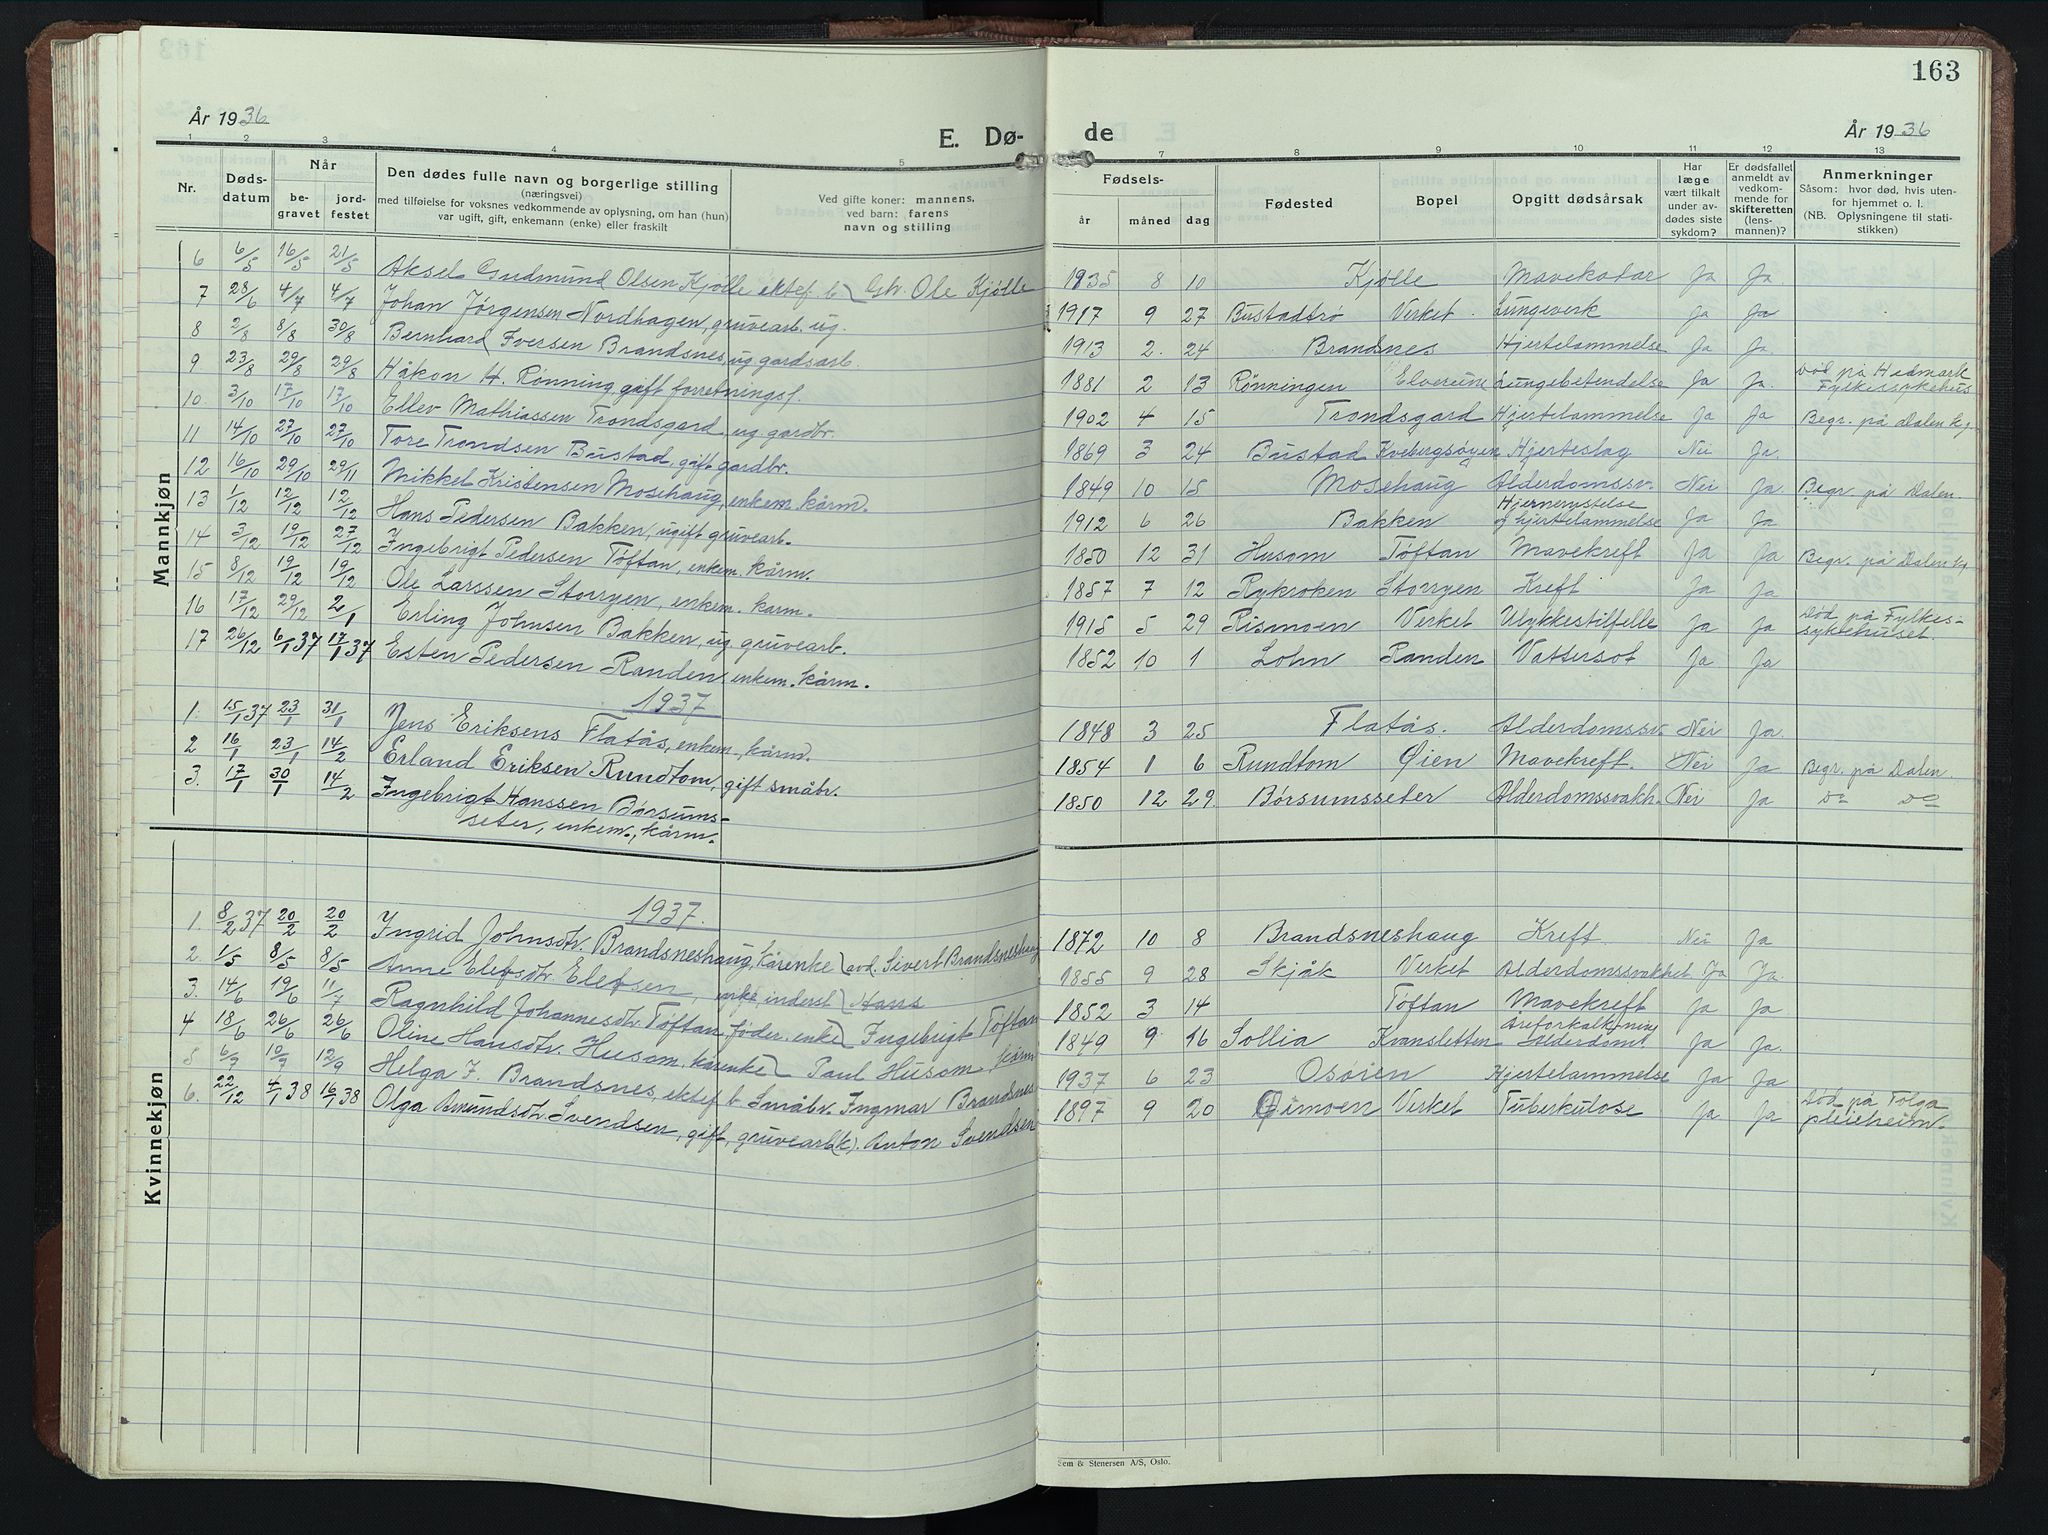 163
År 1936
E. Dø-
de
År 1936
1 2 3 4 5 7 8 9 10 11 12 13
Nr.
Døds-
datum
Når
be-
gravet
jord-
festet
Den dødes fulle navn og borgerlige stilling
(næringsvei)
med tilføielse for voksnes vedkommende av oplysning, om han (hun)
var ugift, gift, enkemann (enke) eller fraskilt
Ved gifte koner: mannens,
ved barn: farens
navn og stilling
Fødsels-
år måned dag
Fødested
Bopel
Opgitt dødsårsak
Har
læge
vært tilkalt
under av-
dødes siste
sykdom?
Er dødsfallet
anmeldt av
vedkom-
mende for
skifteretten
(lens-
mannen)?
Anmerkninger
Såsom: hvor død, hvis uten-
for hjemmet o. l.
(NB. Oplysningene til stati-
stikken)
Mannkjøn
6 6/5 16/5 21/5 Aksel Gudmund Olsen Kjølle ektef. b. Gbr. Ole Kjølle 1935 8 10 Kjølle Mavekatar Ja Ja
7 28/6 4/7 4/7 Johan Jørgensen Nordhagen, gruvearb. ug. 1917 9 27 Bustadtrø Verket Lungeverk Ja Ja
8 2/8 8/8 30/8 Bernhard Iversen Brandsnes, ug. gardsarb. 1913 2 24 Brandsnes Hjertelammelse Ja Ja
9 23/8 29/8 29/8 Håkon H. Rønning, gift forretningsf. 1881 2 13 Rønningen Elverum Lungebetendelse Ja Ja. Död på Hedmark
Fylkessykehus
10. 3/10 17/10 17/10 Ellev Mathiassen Trondsgard, ug. gardbr. 1902 4 15 Trondsgard Hjertelammelse Ja Ja Begr. på Dalen kg.
11 14/10 27/10 27/10 Tore Trondsen Bustad, gift gardbr. 1869 3 24 Bustad Kvebergsøyen Hjerteslag Nei Ja.
12 16/10 29/10 29/11 Mikkel Kristensen Mosehaug, enkem. kårm. 1849 10 15 Mosehaug Alderdomssv. Nei Ja. Begr. på Dalen.
13 1/12 12/12 12/12 Hans Pedersen Bakken, ugift gruvearb. 1912 6 26 Bakken Hjernerystelse
og hjertelammelse Ja Ja
14 3/12 19/12 27/12 Ingebrigt Pedersen Töftan, enkem. kårm. 1850 12 31 Husom Töftan Mavekreft Ja Ja Begr. på Dalen kg
15 8/12 19/12 19/12 Ole Larssen Storryen, enkem. karm. 1857 7 12 Rykroken Storryen Kreft Ja Ja
16 17/12 29/12 2/1 Erling Johnsen Bakken, ug. gruvearb. 1915 5 29 Rismoen Verket Ulykkestilfelle Ja Ja Död på Fylkes-
sykehuset.
17 26/12 6/1 37 17/1 37 Esten Pedersen Randen enkem. kårm. 1852 10 1 Lohn Randen Vattersot Ja Ja
1937
1. 15/1 37 23/1 31/1 Jens Eriksens Flatås, enkem., kårm. 1848 3 25 Flatås. Alderdomssv. Nei Ja.
2 16/1 23/1 14/2 Erland Eriksen Rundtom, gift småbr. 1854 1 6 Rundtom Øien Mavekreft. Nei Ja Begr. på Dalen
3. 17/1 30/1 14/2 Ingebrigt Hanssen Børsums-
seter, enkem., kårm. 1850 12 29 Børsumsseter Alderdomssvakh. Nei Ja Do Do
Kvinnekjøn
1937.
1. 8/2 37 20/2 20/2 Ingrid Johnsdtr. Brandsneshaug, kårenke avd. Sivert Brandsneshaug 1872 10 8 Brandsneshaug Kreft. Nei Ja
2. 1/5 8/5 8/5 Anne Elefsdtr. Elefsen, enke, inderst Hans 1855 9 28 Skjåk Verket Alderdomssvakhet Ja Ja.
3. 14/6 19/6 11/7 Ragnhild Johannesdtr. Töftan, föder. enke Ingebrigt Töftan 1852 3 14 Töftan Mavekreft Ja Ja
4 18/6 26/6 26/6 Oline Hansdtr. Husom, kårenke Paul Husom, kårm 1849 9 16 Sollia Kvansletten Åreforkalkning
Alderdom Ja Ja.
5 6/9 10/9 12/9 Helga I. Brandsnes, ektef. b. Småbr. Ingmar Brandsnes 1937 6 23 Osøien Hjertelammelse Ja Ja
6. 22/12 4/1 38 16/1 38 Olga Amundsdtr. Svendsen, gift, gruvearb(k). Anton Svendsen 1897 9 20 Øimoen Verket Tuberkulose Ja Ja Död på Tolga
pleieheim.
Sem & Stenersen A/S, Oslo.